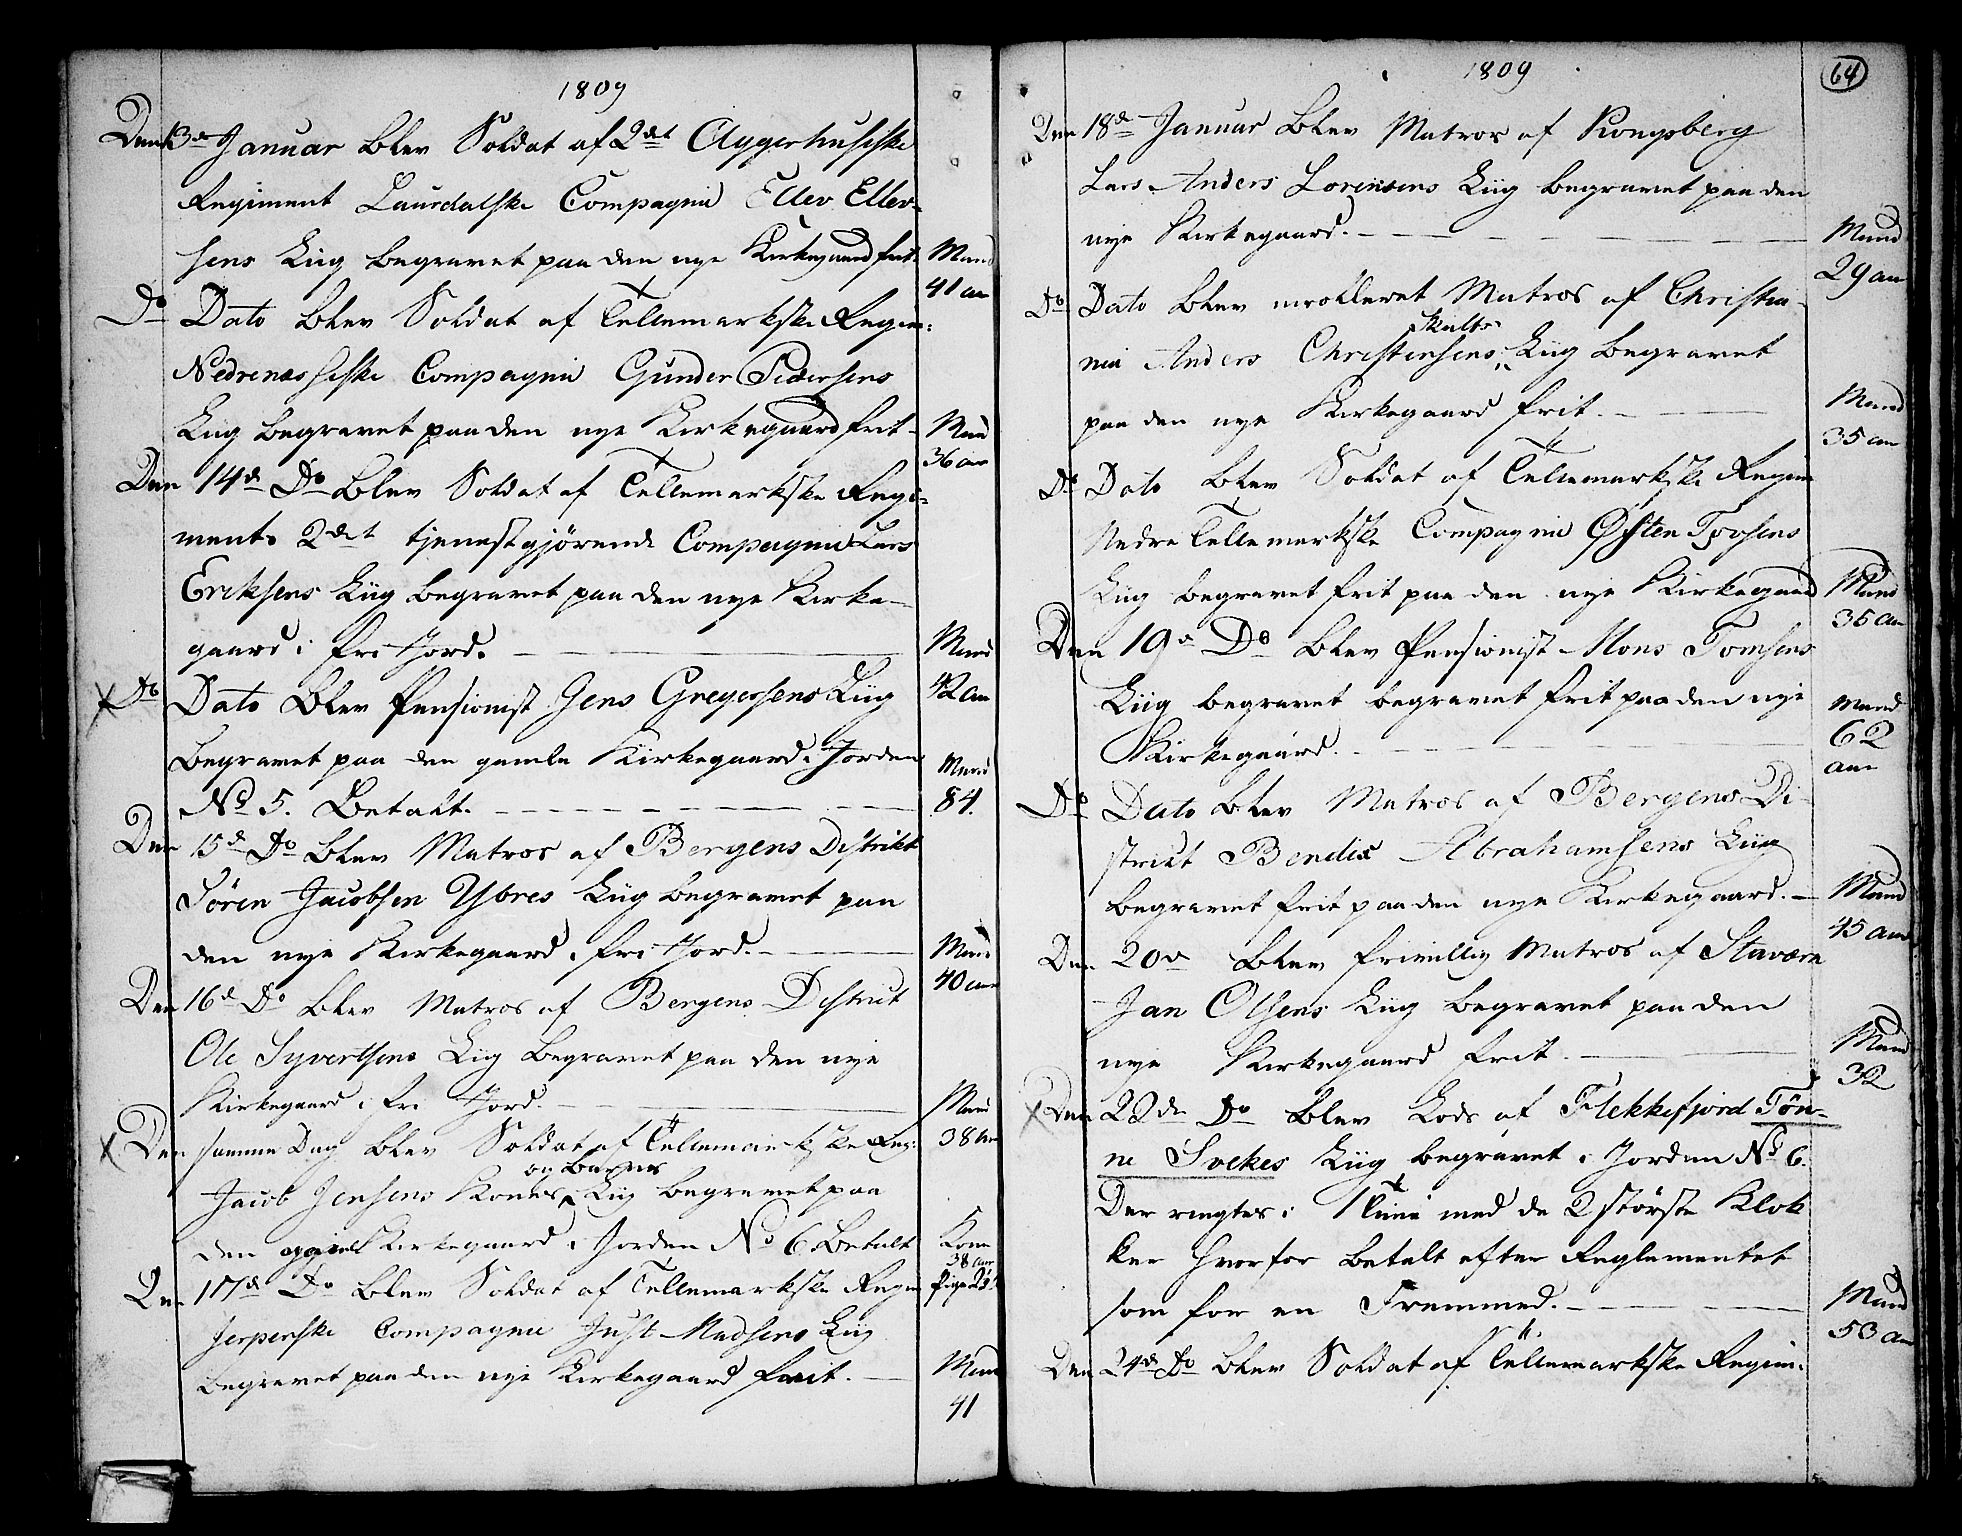 1809
Den 13de Januar blev Soldat af 2det Aggerhusiske
Regiment Laurdalske Compagnie Ellev Ellev-
sens Liig begravet paa den nye Kirkegaard frit. Mand
41 aar
Do Dato blev Soldat af Tellemarkske Regim:
Nedrenæssiske Compagnie Gunder Pedersens
Liig begravet paa den nye Kirkegaard frit - Mand
36 aar
Den 14de Do blev Soldat af Tellemarkske Regi-
ments 2det tjenestgjørende Compagnie Lars
Eriksens Liig begravet paa den nye Kirke-
gaard i fri Jord. Mand
42 aar
x Do Dato blev Pensionist Jens Gregersens Liig
begravet paa den gamle Kirkegaard i Jorden Mand
No 5. Betalt. 84.
Den 15de Do blev Matros af Bergens Distrikt
Sören Jacobsen Ybres Liig begravet paa
den nye Kirkegaard i fri Jord. Mand
40 aar
Den 16de Do blev Matros af Bergens District
Ole Syvertsens Liig begravet paa den nye
Kirkegaard i fri Jord. Mand
38 aar
x Den samme Dag blev Soldat af Tellemarkske Reg:
og Barns
Jacob Jensens Kones Liig begravet paa
den Kirkegaard i Jorden No 6. Betalt Kone
38 aar
Den 17de Do blev Soldat af Tellemarkske Regim Pige
Jerpenske Compagnie Just Madsens Liig
begravet paa den nye Kirkegaard frit. Mand
41
64
1809
Den 18de Januar blev Matros af Kongsberg
Lars Anders Lorensens Liig begravet paa den
nye Kirkegaard. Mand
29 aar
Do Dato blev enrolleret Matros af Christia-
Skults
nia Anders Christensens Liig begravet
paa den nye Kirkegaard frit. Mand
35 aar
Do Dato blev Soldat af Tellemarkske Regim
Nedre Tellemarkske Compagnie Østen Tovsens
Liig begravet frit paa den nye Kirkegaard Mand
35 aar
Den 19de Do blev Pensionist Mons Tomsens
Liig begravet begravet frit paa den nye Mand
Kirkegaard. 62
aar
Do Dato blev Matros af Bergens Di-
strikt Bendix Abrahamsens Liig
begravet frit paa den nye Kirkegaard. Mand
45 aar
Den 20de blev frivillig Matros af Staværn
Jan Olsens Liig begravet paa den
nye Kirkegaard frit. Mand
32
x Den 22de Do blev Lods af Flekkefjord Tön-
ne Svekes Liig begravet i Jorden No 6.
Der ringtes i 1 Time med de 2 störste Klok
ker hvorfor betalt efter Reglementet
som for en Fremmed. Mand
53 aar
Den 24de Do blev Soldat af Tellemarkske Regim: